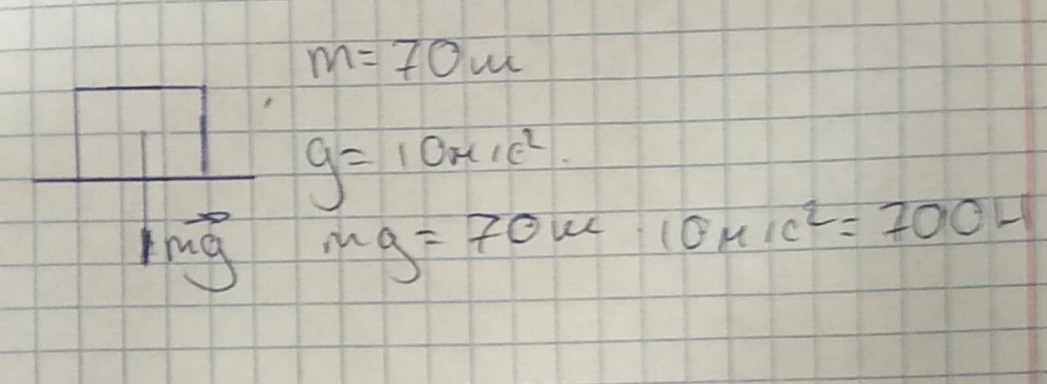 m = 70 кг
g = 10 м/с².
mg
mg = 70 кг · 10 м/с² = 700 Н